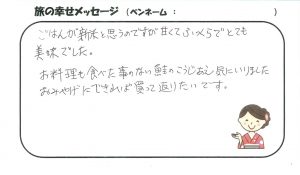 旅の幸せメッセージ (ペンネーム: )
ごはんが新米と思うのですが甘くてふっくらでとても
美味でした。
お料理も食べた事のない鮭のこうじあえ 気にいりました
おみやげにできれば買って返りたいです。